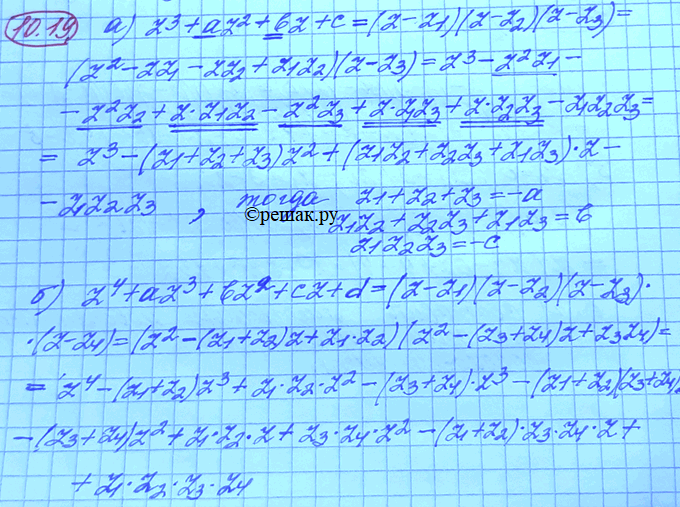 10.19 а) z³ + az² + bz + c = (z - z₁)(z - z₂)(z - z₃) =
(z² - zz₁ - zz₂ + z₁z₂)(z - z₃) = z³ - z²z₁ -
- z²z₂ + z·z₁z₂ - z²z₃ + z·z₁z₃ + z·z₂z₃ - z₁z₂z₃ =
= z³ - (z₁ + z₂ + z₃)z² + (z₁z₂ + z₂z₃ + z₁z₃)·z -
- z₁z₂z₃, тогда z₁ + z₂ + z₃ = -a
©решак.ру z₁z₂ + z₂z₃ + z₁z₃ = b
z₁z₂z₃ = -c
б) z⁴ + az³ + bz² + cz + d = (z - z₁)(z - z₂)(z - z₃)·
·(z - z₄) = (z² - (z₁ + z₂)z + z₁·z₂)(z² - (z₃ + z₄)z + z₃z₄) =
= z⁴ - (z₁ + z₂)z³ + z₁·z₂·z² - (z₃ + z₄)·z³ - (z₁ + z₂)(z₃ + z₄)
- (z₃ + z₄)z² + z₁·z₂·z + z₃·z₄·z² - (z₁ + z₂)·z₃·z₄·z +
+ z₁·z₂·z₃·z₄